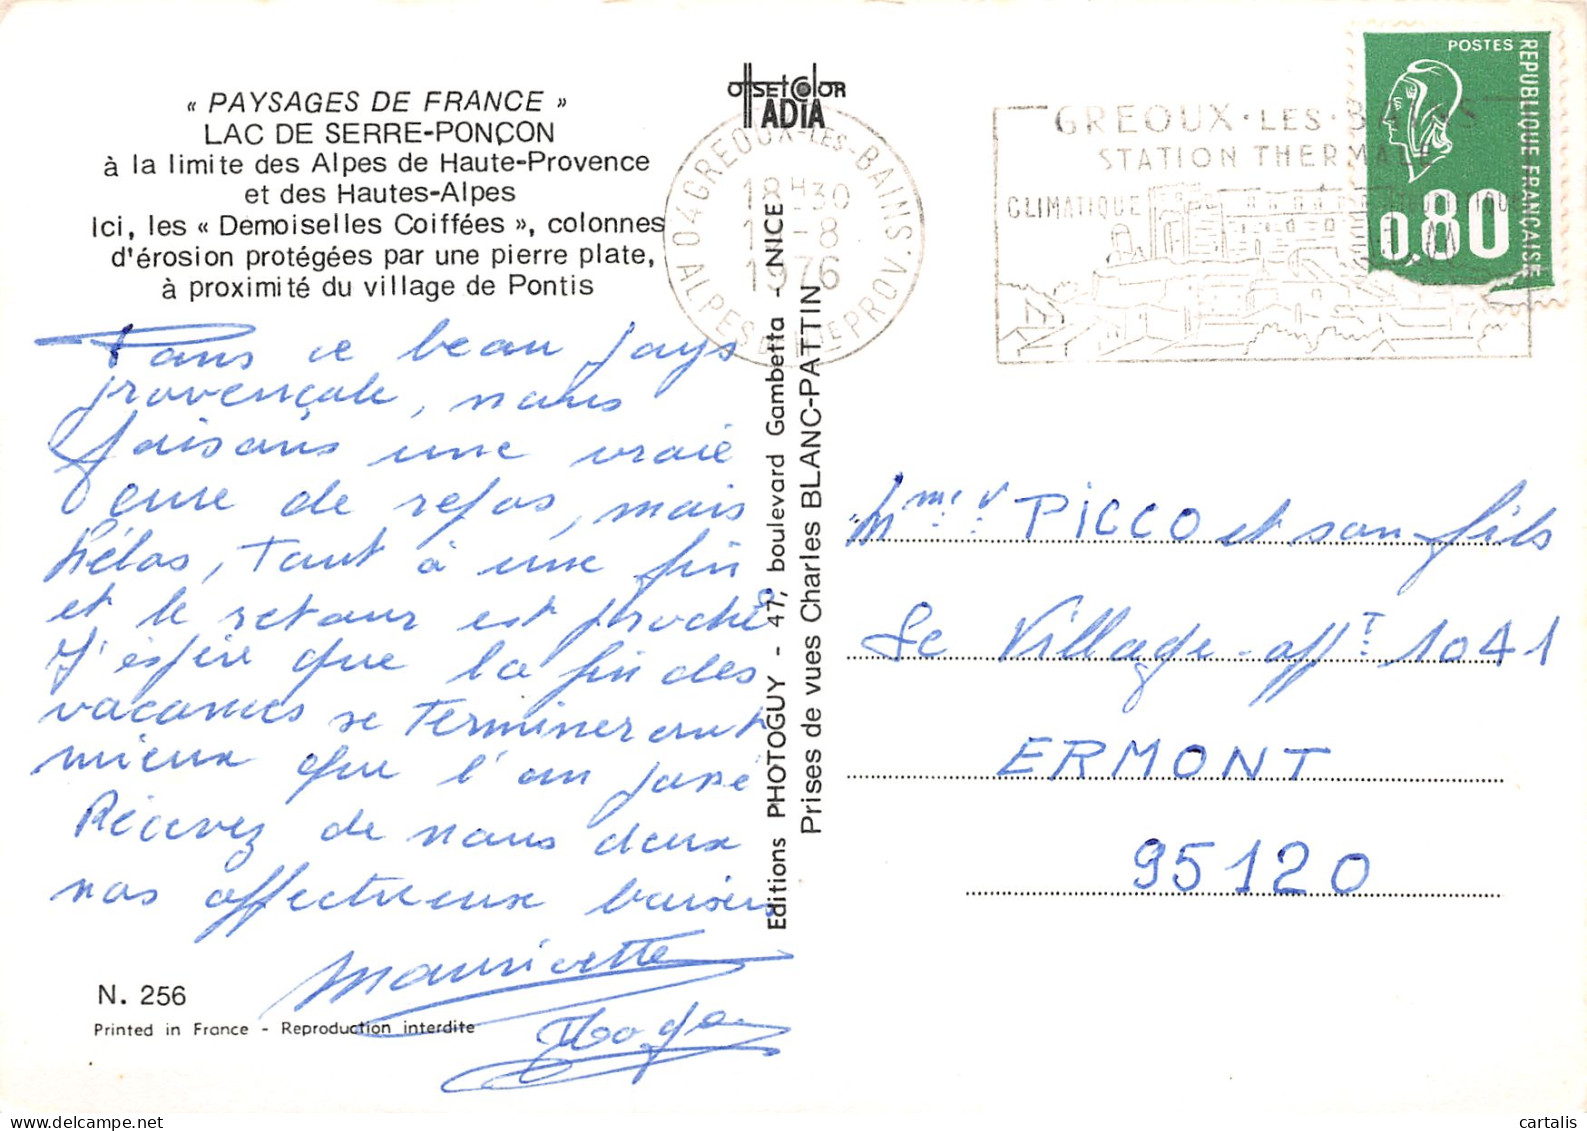 « PAYSAGES DE FRANCE »
LAC DE SERRE-PONÇON
à la limite des Alpes de Haute-Provence
et des Hautes-Alpes
Ici, les « Demoiselles Coiffées », colonnes
d'érosion protégées par une pierre plate,
à proximité du village de Pontis
Dans ce beau pays
provençale, nous
faisons une vraie
cure de repos, mais
hélas, tout à une fin
et le retour est proche
J'espère que la fin des
vacances se termineront
mieux que l'an passé
Recevez de nous deux
nos affectueux baisers
Mauricette
N. 256
Printed in France - Reproduction interdite
OffsetColor
ADIA
Editions PHOTOGUY - 47, boulevard Gambetta - NICE
Prises de vues Charles BLANC-PATTIN
04 GREOUX-LES-BAINS
18H30
-8
1976
GREOUX·LES·BAINS
STATION THERMALE
CLIMATIQUE
POSTES
REPUBLIQUE FRANÇAISE
0,80
Mme PICCO et son fils
Le Village-appt 1041
ERMONT
95120
cartalis